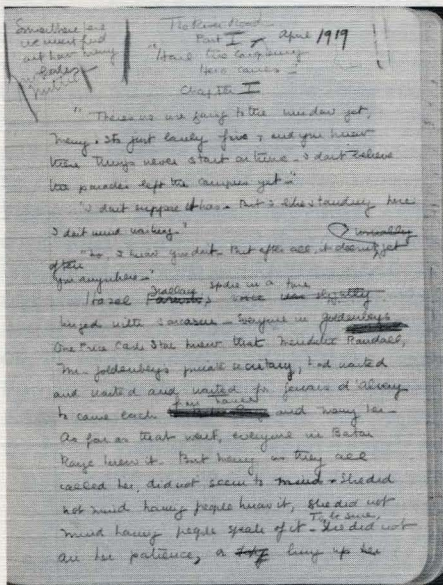 Somewhere here
we must find
out how many
The River Road
Part I April 1919
"Hail the Conquering
Hero Comes"
Chapter I
"There's no use going to the window yet,
Merry. It's just barely five, and you know
these things never start on time. I don't believe
the parade's left the campus yet."
"I don't suppose it has. But I like standing here
I don't mind waiting."
"No. I know you don't. But after all, it does not get
you anywhere."
Hazel spoke in a tone slightly
tinged with sarcasm. Everyone in Goldenberg's
One Price Cash Store knew that Merideth Randall,
Mr. Goldenberg's private secretary, had waited
and waited and waited for Gervais d'Alvery
to come back from France and marry her.
As far as that went, everyone in Baton
Rouge knew it. But Merry, as they all
called her, did not seem to mind. She did
not mind having people know it, she did not
mind having people speak of it. To be sure, she did not
air her patience, or bring up her